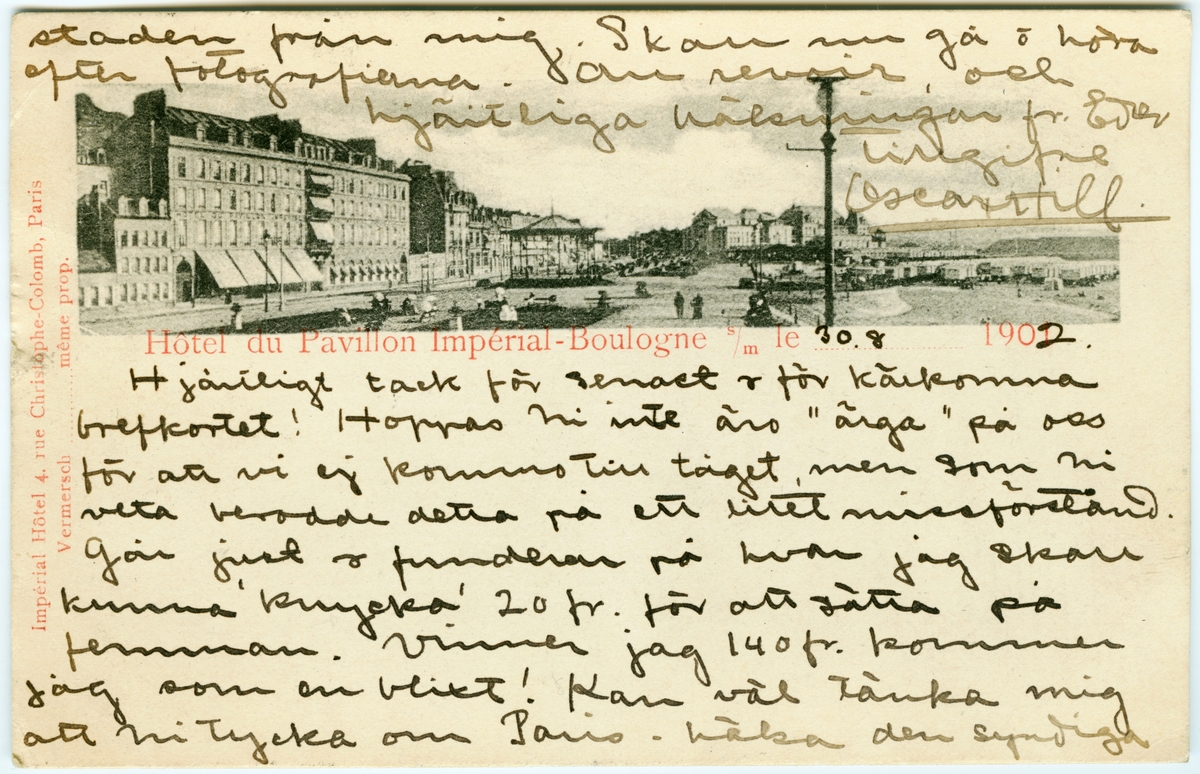 staden från mig. Skall nu gå o höra
efter fotografierna. Au revoir, och
hjärtliga hälsningar fr. Eder
tillgifne
Oscar Hill.
Hôtel du Pavillon Impérial-Boulogne s/m le 30.8 1902.
Impérial Hôtel 4. rue Christophe-Colomb, Paris
Vermersch même prop.
Hjärtligt tack för senast & för kärkomna
brefkortet! Hoppas Ni inte äro "arga" på oss
för att vi ej kommo till tåget, men som Ni
veta berodde detta på ett litet missförstånd.
Går just & funderar på hvar jag skall
kunna 'knycka' 20 fr. för att sätta på
femman. Vinner jag 140 fr. kommer
jag som en blixt! Kan väl tänka mig
att Ni tycka om Paris - hälsa den syndiga